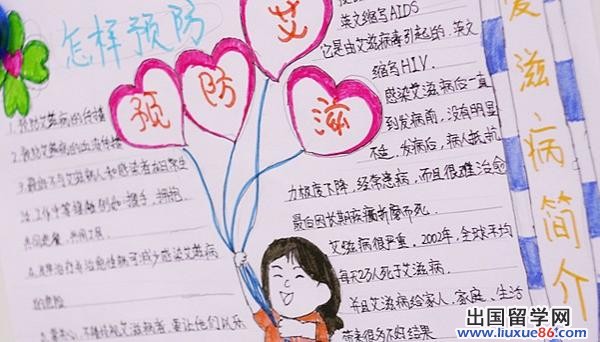 怎样预防
艾
预 防 滋
的传播
2.预防艾滋病的血液传播
艾滋病人和感染者
例如:握手、拥抱、
共同进餐、共用工具
治疗 治愈性 就可减少感染艾滋病
的危险
艾滋病 要让他们以乐
英文缩写AIDS
它是由艾滋病毒引起的,英文
缩写HIV.
感染艾滋病后一直
到发病前,没有明显
不适,发病后,病人抵抗
力极度下降,经常患病,而且很难治愈
最后因长期疾病折磨而死.
艾滋病很严重,2002年,全球平均
每天 人死于艾滋病.
并且艾滋病给家人、家庭、生活
带来很多不好结果
艾滋病简介
出国留学网
www.liuxue86.com